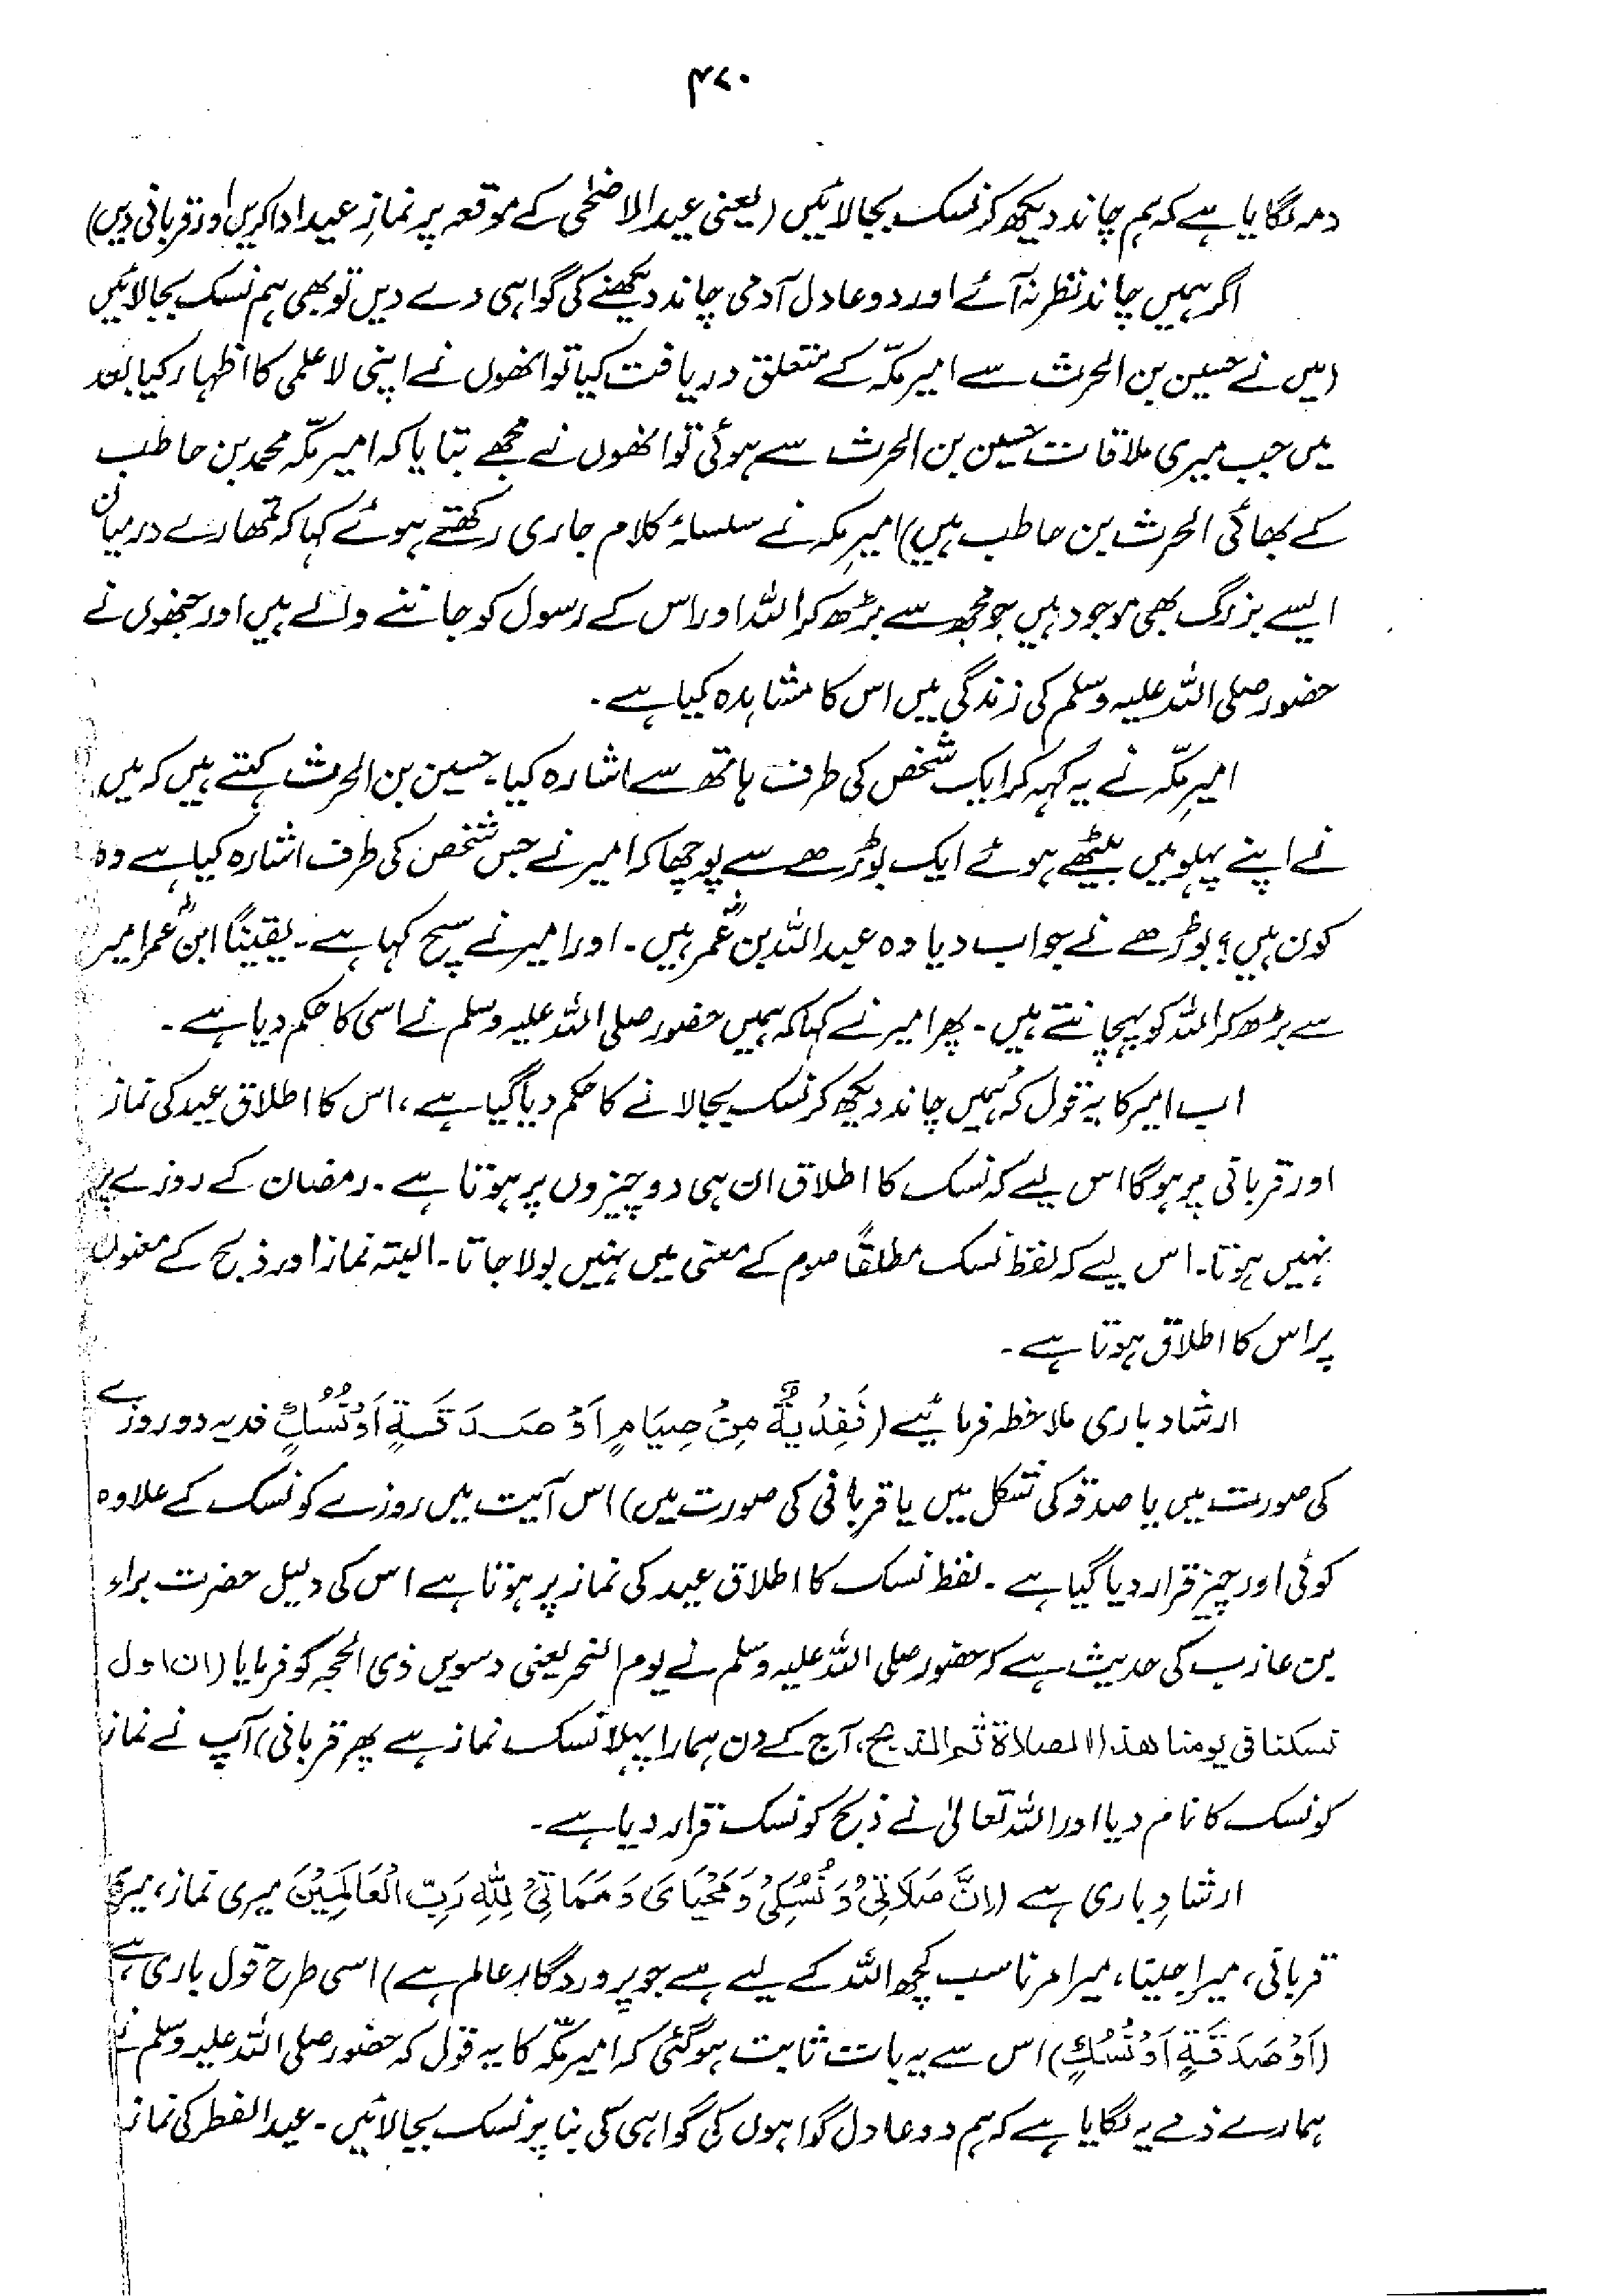 ۴۷۰
ذمہ لگایا ہے کہ ہم چاند دیکھ کر نسک بجا لائیں (یعنی عید الاضحٰی کے موقعہ پر نمازِ عید ادا کریں اور قربانی دیں)
اگر ہمیں چاند نظر نہ آئے اور دو عادل آدمی چاند دیکھنے کی گواہی دے دیں تو بھی ہم نسک بجا لائیں
(میں نے حسین بن الحرث سے امیر مکّہ کے متعلق دریافت کیا تو انھوں نے اپنی لاعلمی کا اظہار کیا بعد
میں جب میری ملاقات حسین بن الحرث سے ہوئی تو انھوں نے مجھے بتایا کہ امیر مکّہ محمد بن حاطب
کے بھائی الحرث بن حاطب ہیں) امیرِ مکہ نے سلسلۂ کلام جاری رکھتے ہوئے کہا کہ تمھارے درمیان
ایسے بزرگ بھی موجود ہیں جو مجھ سے بڑھ کر اللہ اور اس کے رسول کو جاننے والے ہیں اور جنھوں نے
حضور صلی اللہ علیہ وسلم کی زندگی میں اس کا مشاہدہ کیا ہے۔
امیرِ مکّہ نے یہ کہہ کر ایک شخص کی طرف ہاتھ سے اشارہ کیا۔ حسین بن الحرث کہتے ہیں کہ میں
نے اپنے پہلو میں بیٹھے ہوئے ایک بوڑھے سے پوچھا کہ امیر نے جس شخص کی طرف اشارہ کیا ہے وہ
کون ہیں؟ بوڑھے نے جواب دیا وہ عبداللہ بن عمرؓ ہیں۔ اور امیر نے سچ کہا ہے۔ یقیناً ابن عمرؓ امیر
سے بڑھ کر اللہ کو پہچانتے ہیں۔ پھر امیر نے کہا کہ ہمیں حضور صلی اللہ علیہ وسلم نے اسی کا حکم دیا ہے۔
اب امیر کا یہ قول کہ ہمیں چاند دیکھ کر نسک بجا لانے کا حکم دیا گیا ہے، اس کا اطلاق عید کی نماز
اور قربانی پر ہوگا اس لیے کہ نسک کا اطلاق ان ہی دو چیزوں پر ہوتا ہے۔ رمضان کے روزے پر
نہیں ہوتا۔ اس لیے کہ لفظ نسک مطلقاً صوم کے معنی میں نہیں بولا جاتا۔ البتہ نماز اور ذبح کے معنوں
پر اس کا اطلاق ہوتا ہے۔
ارشاد باری ملاحظہ فرمائیے (فَفِدْيَةٌ مِنْ صِيَامٍ اَوْ صَدَقَةٍ اَوْ نُسُكٍ فدیہ دو روزے
کی صورت میں یا صدقہ کی شکل میں یا قربانی کی صورت میں) اس آیت میں روزے کو نسک کے علاوہ
کوئی اور چیز قرار دیا گیا ہے۔ لفظ نسک کا اطلاق عید کی نماز پر ہوتا ہے اس کی دلیل حضرت براء
بن عازب کی حدیث ہے کہ حضور صلی اللہ علیہ وسلم نے یوم النحر یعنی دسویں ذی الحجہ کو فرمایا (ان اول
نسکنا فی یومنا ھذا الصلاۃ ثم الذبح، آج کے دن ہمارا پہلا نسک نماز ہے پھر قربانی) آپ نے نماز
کو نسک کا نام دیا اور اللہ تعالیٰ نے ذبح کو نسک قرار دیا ہے۔
ارشادِ باری ہے (اِنَّ صَلَاتِيْ وَ نُسُكِيْ وَ مَحْيَايَ وَ مَمَاتِيْ لِلّٰهِ رَبِّ الْعَالَمِيْنَ میری نماز، میری
قربانی، میرا جینا، میرا مرنا سب کچھ اللہ کے لیے ہے جو پروردگارِ عالم ہے) اسی طرح قول باری ہے
(اَوْ صَدَقَةٍ اَوْ نُسُكٍ) اس سے یہ بات ثابت ہوگئی کہ امیر مکّہ کا یہ قول کہ حضور صلی اللہ علیہ وسلم نے
ہمارے ذمے یہ لگایا ہے کہ ہم دو عادل گواہوں کی گواہی کی بنا پر نسک بجا لائیں۔ عید الفطر کی نماز